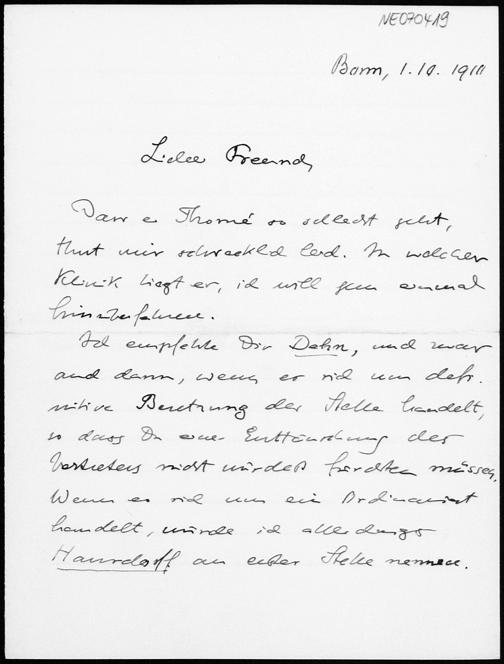 NE070419
Bonn, 1.10. 1911
Lieber Freund,
Dass es Thomé so schlecht geht,
thut mir schrecklich leid. In welcher
Klinik liegt er, ich will gern einmal
hinüberfahren.
Ich empfehle Dir Dehn, und zwar
auch dann, wenn es sich um defi-
nitive Besetzung der Stelle handelt,
so dass Du eine Enttäuschung des
Vertreters nicht würdest fürchten müssen.
Wenn es sich um ein Ordinariat
handelt, würde ich allerdings
Hausdorff an erster Stelle nennen.